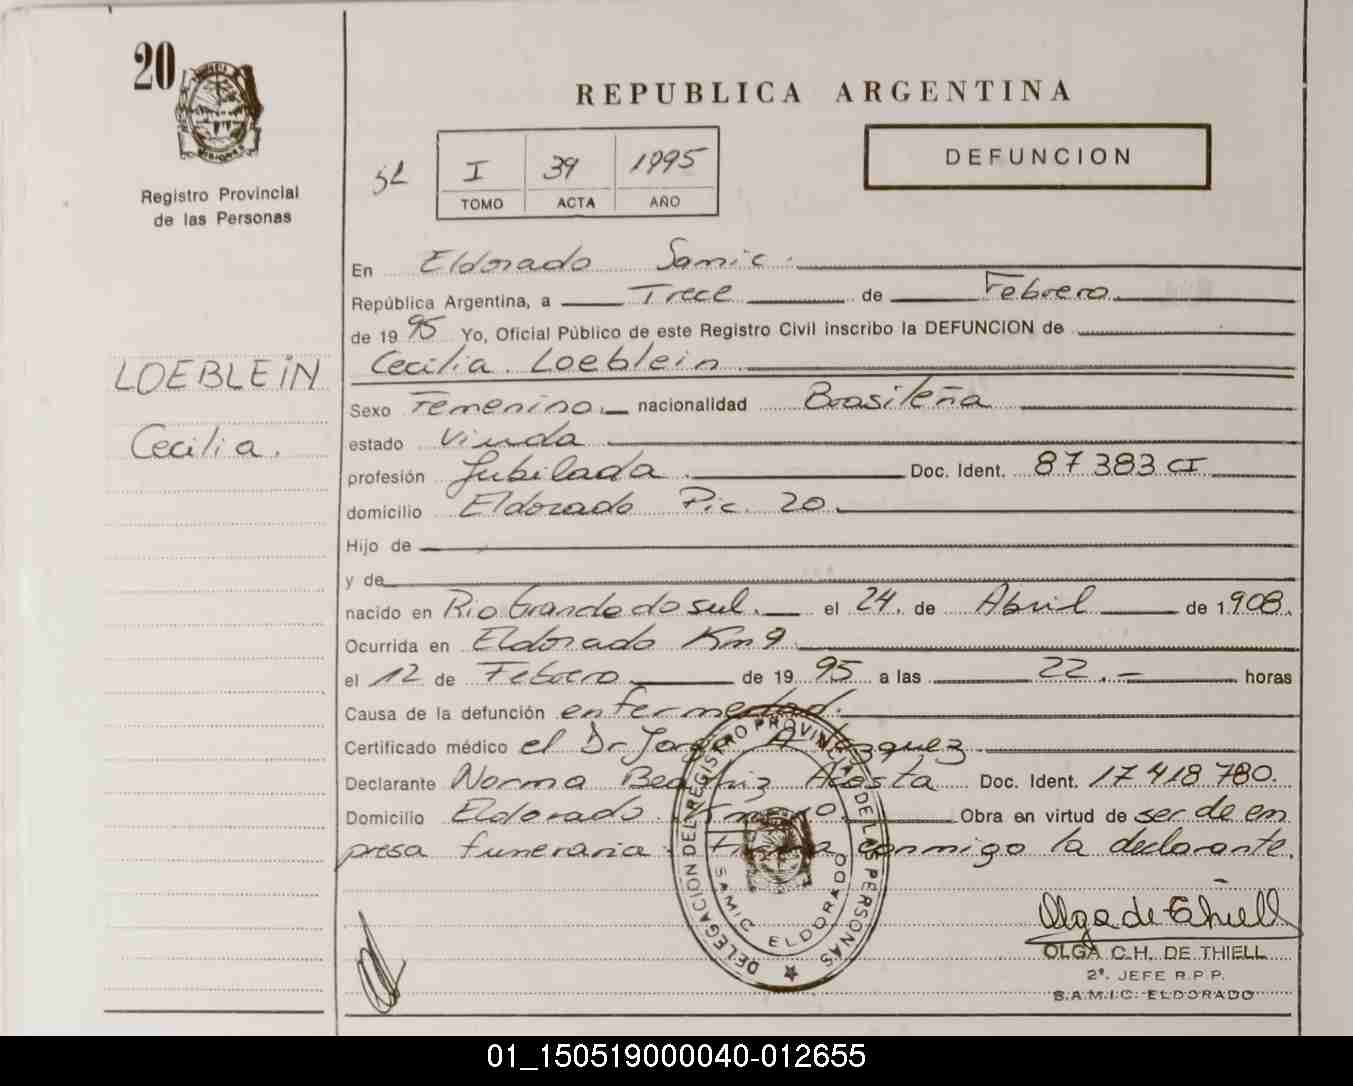 20
Registro Provincial
de las Personas
LOEBLEIN
Cecilia.
REPUBLICA ARGENTINA
I 39 1995
TOMO ACTA AÑO
DEFUNCION
En Eldorado Samic.
República Argentina, a Trece de Febrero
de 1995 Yo, Oficial Público de este Registro Civil inscribo la DEFUNCION de
Cecilia Loeblein
Sexo Femenino. nacionalidad Brasileña
estado Viuda
profesión Jubilada. Doc. Ident. 87 383 CI
domicilio Eldorado Pic. 20.
Hijo de
y de
nacido en Rio Grande do sul. el 24. de Abril de 1.908.
Ocurrida en Eldorado Km 9
el 12 de Febrero de 1995 a las 22.- horas
Causa de la defunción enfermedad.
Certificado médico el Dr Jorge A
Declarante Norma Beatriz Acosta Doc. Ident. 17 418 780.
Domicilio Eldorado Obra en virtud de ser de em
presa funeraria. Firma conmigo la declarante.
DELEGACION DEL REGISTRO PROVINCIAL DE LAS PERSONAS
SAMIC ELDORADO
Olga de Thiell
OLGA C.H. DE THIELL
2º. JEFE R.P.P.
S.A.M.I.C. ELDORADO
01_150519000040-012655